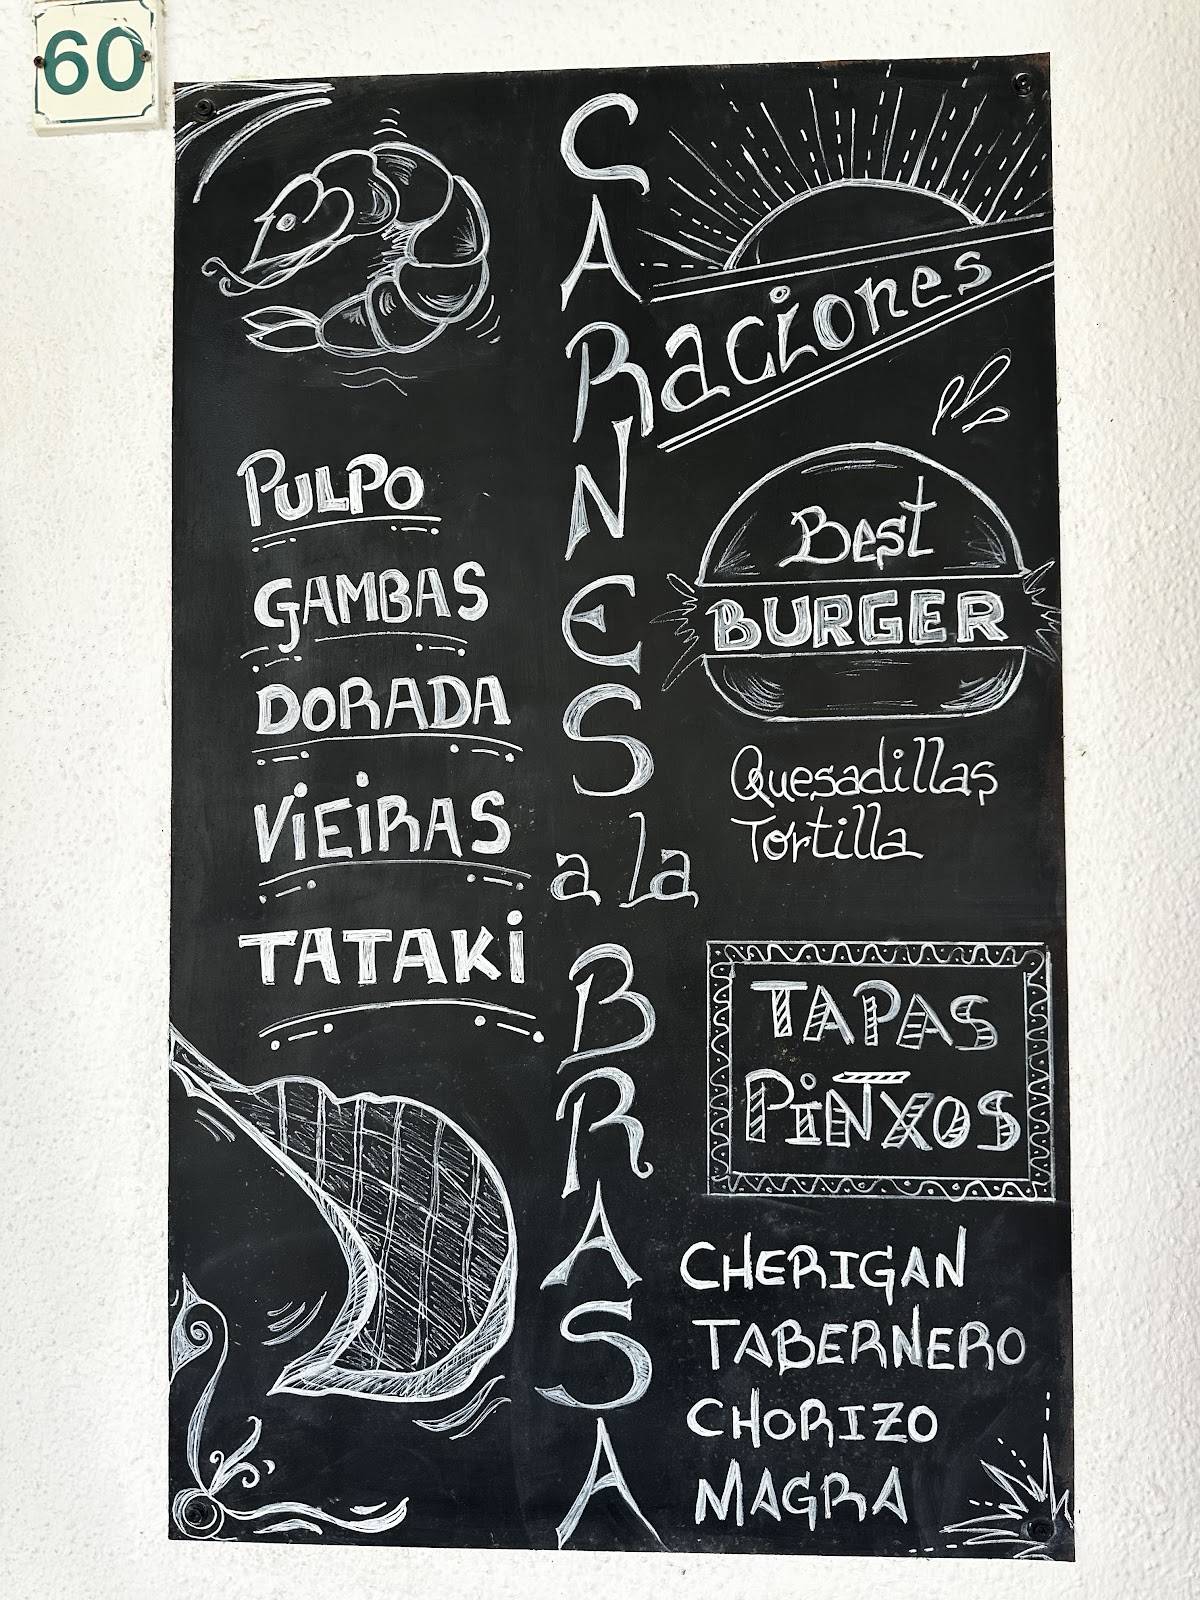 60
PULPO
GAMBAS
DORADA
ViEiRAS
TATAKi
CARNES
a la
BRASA
Raciones
Best
BURGER
Quesadillas
Tortilla
TAPAS
PiNTXOS
CHERIGAN
TABERNERO
CHORIZO
MAGRA